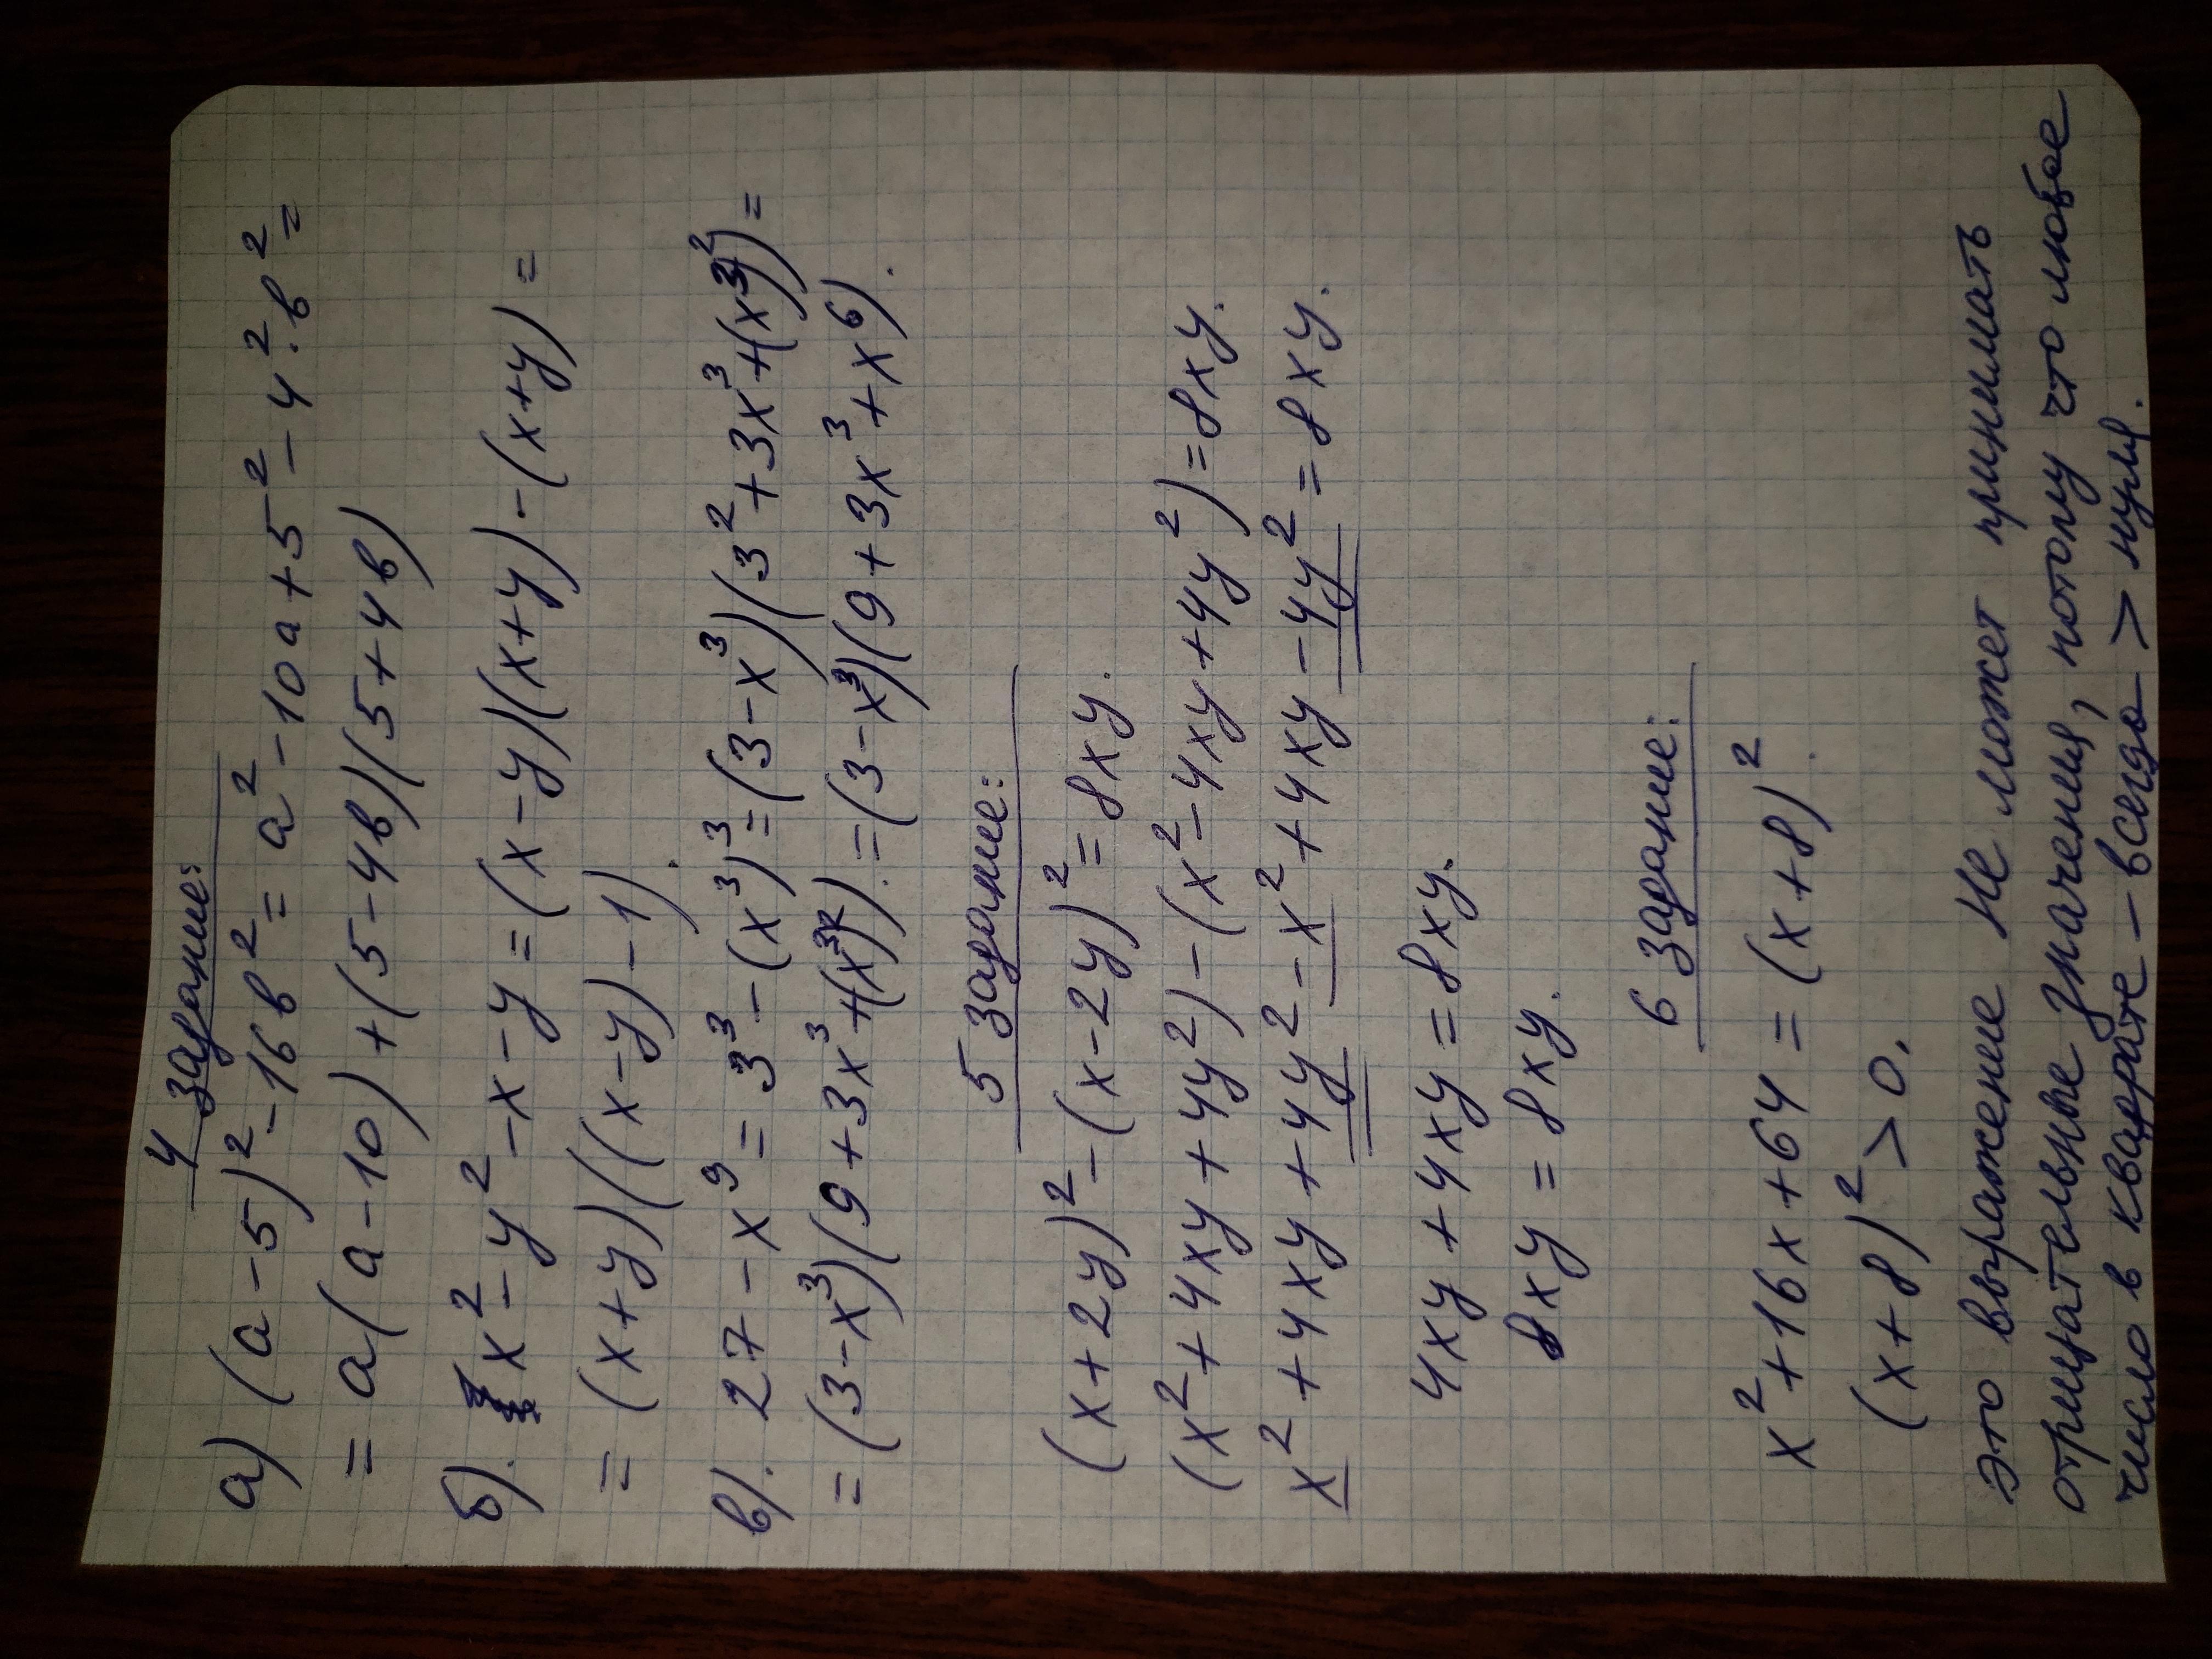 4 задание:
а) (a-5)²-16b² = a²-10a+5²-4²·b² =
= a(a-10)+(5-4b)(5+4b)
б). x²-y²-x-y = (x-y)(x+y)-(x+y) =
= (x+y)((x-y)-1).
в). 27-x⁹ = 3³-(x³)³ = (3-x³)(3²+3x³+(x³)²) =
= (3-x³)(9+3x³+(x³)²). = (3-x³)(9+3x³+x⁶).
5 задание:
(x+2y)²-(x-2y)² = 8xy.
(x²+4xy+4y²)-(x²-4xy+4y²) = 8xy.
x²+4xy+4y²-x²+4xy-4y² = 8xy.
4xy+4xy = 8xy.
8xy = 8xy.
6 задание:
x²+16x+64 = (x+8)².
(x+8)² > 0.
Это выражение не может принимать
отрицательные значения, потому что любое
число в квадрате - всегда > нуля.